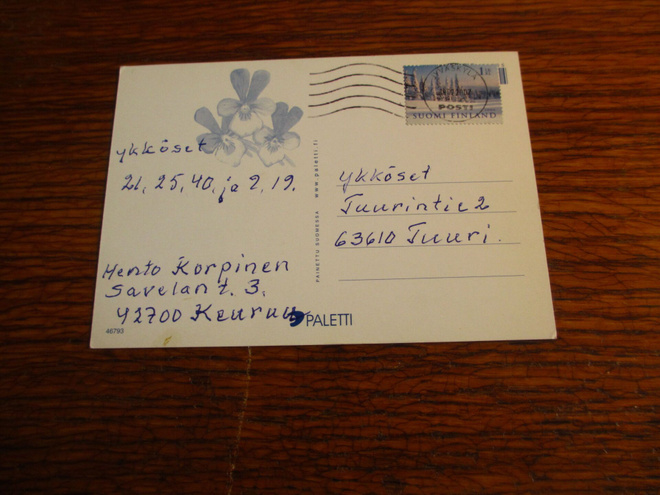 ykköset
21, 25, 40, ja 2, 19.
Hento Korpinen
Savelan t. 3.
42700 Keuruu
46793
PALETTI
PAINETTU SUOMESSA www.paletti.fi
JYVÄSKYLÄ
POSTI
1 lk
SUOMI FINLAND
ykköset
Tuurintie 2
63610 Tuuri.